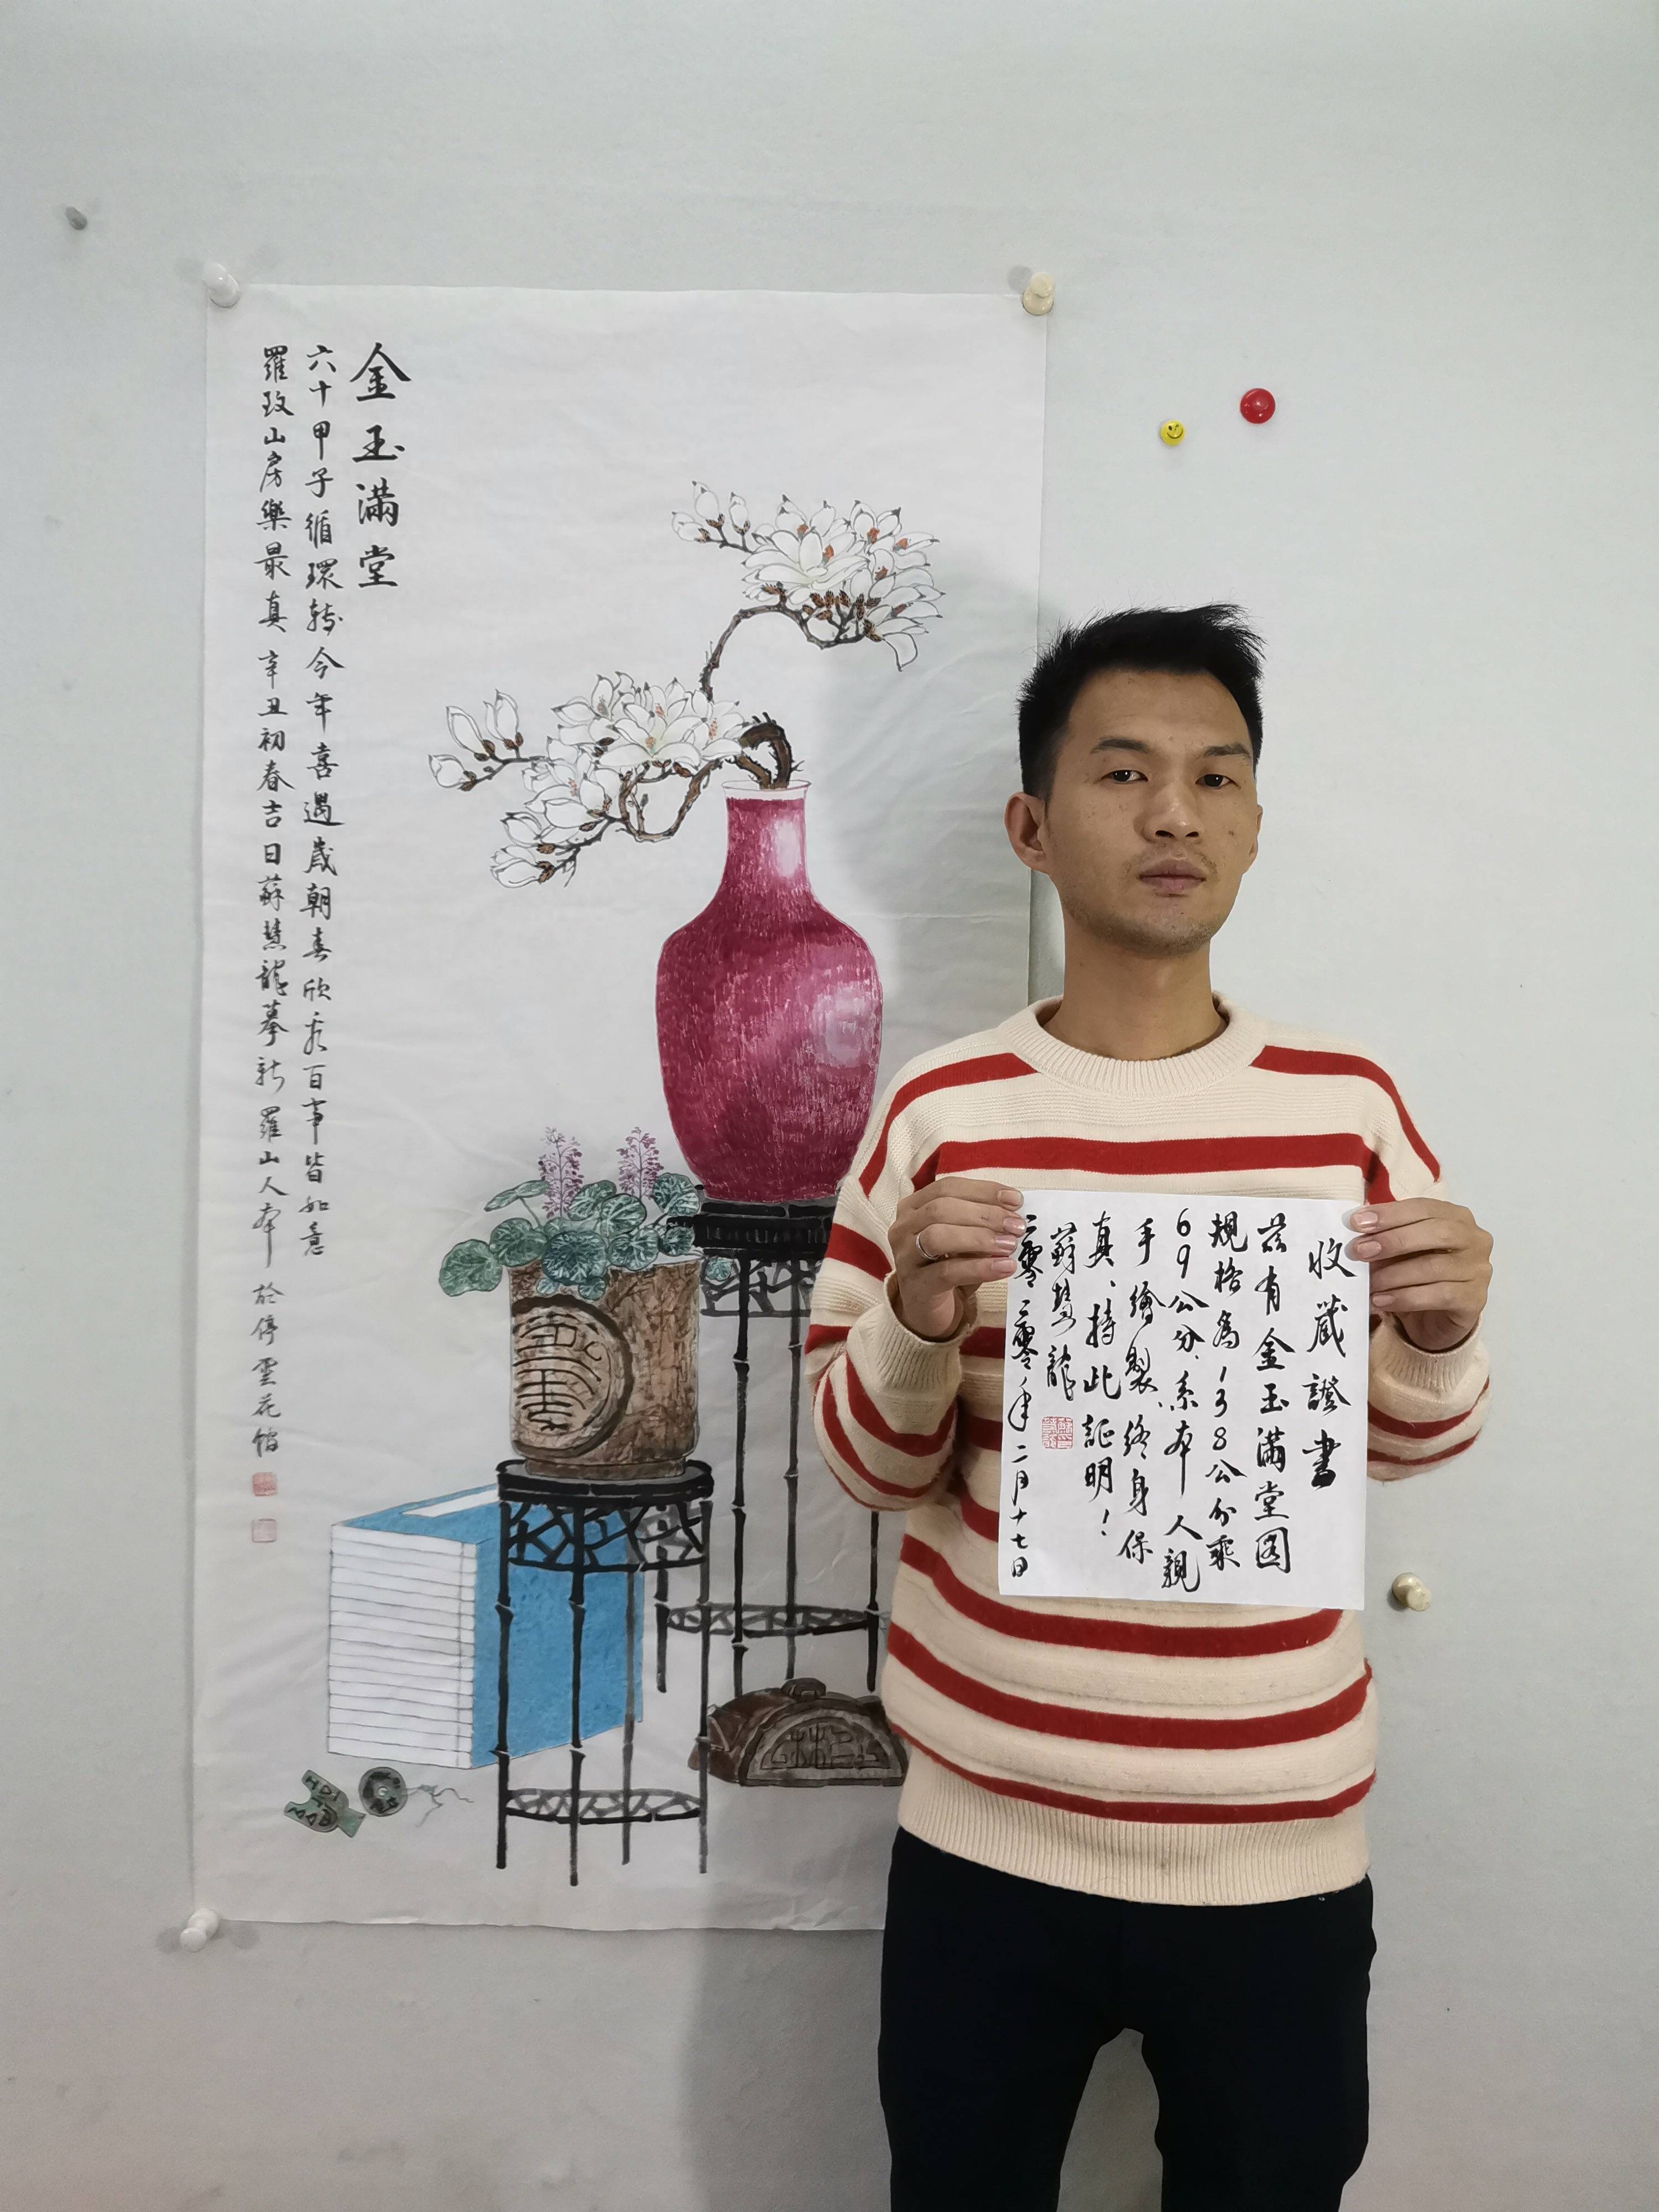 金玉滿堂
六十甲子循環轉今年喜遇歲朝春欣百事皆如意
羅玫山房樂最真 辛丑初春吉日蘇慧龍摹新羅山人本 於停雲花館
收藏證書
茲有金玉滿堂图
規格為138公分乘
69公分.系本人親
手繪製、終身保
真、持此証明！
蘇慧龍
二零二零年二月十七日